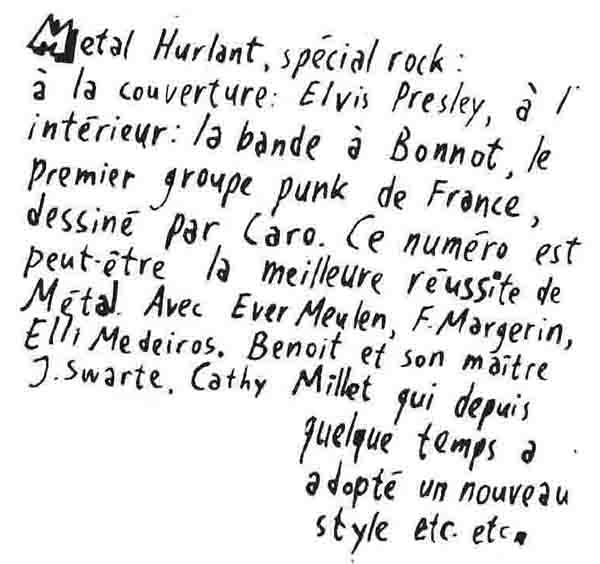 Metal Hurlant, spécial rock :
à la couverture: Elvis Presley, à l'
intérieur: la bande à Bonnot, le
premier groupe punk de France,
dessiné par Caro. Ce numéro est
peut-être la meilleure réussite de
Métal. Avec Ever Meulen, F. Margerin,
Elli Medeiros. Benoit et son maître
J. Swarte. Cathy Millet qui depuis
quelque temps a
adopté un nouveau
style etc. etc.